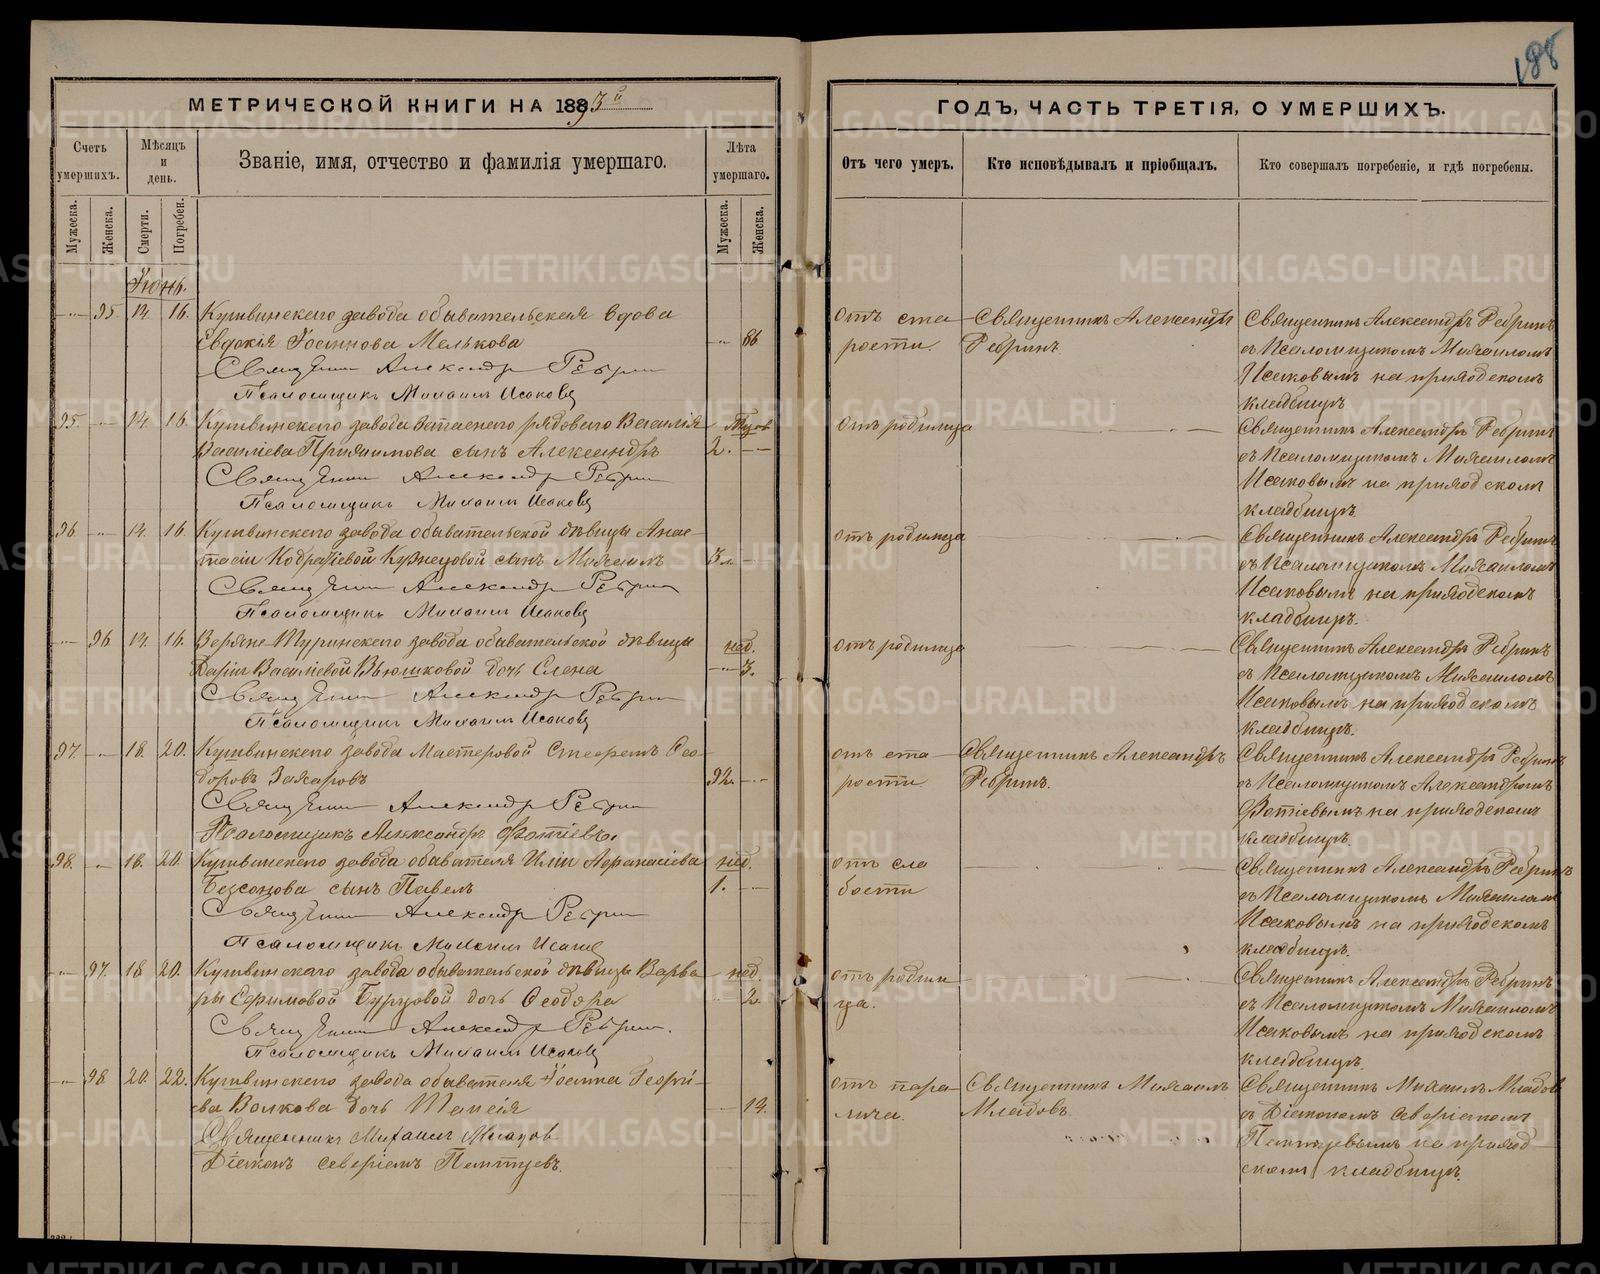 188
МЕТРИЧЕСКОЙ КНИГИ НА 1893й
ГОДЪ, ЧАСТЬ ТРЕТІЯ, О УМЕРШИХЪ.
Счетъ умершихъ.
Мѣсяцъ и день.
Званіе, имя, отчество и фамилія умершаго.
Лѣта умершаго.
Отъ чего умеръ.
Кто исповѣдывалъ и пріобщалъ.
Кто совершалъ погребеніе, и гдѣ погребены.
Мужеска.
Женска.
Смерти.
Погребен.
Мужеска.
Женска.
Іюнь.
95. 14. 16. Кушвинскаго завода обывательская вдова
Евдокія Іоаннова Мелькова 86
Священникъ Александръ Ребринъ
Псаломщикъ Михаилъ Исаковъ
отъ ста
рости.
Священникъ Александръ
Ребринъ.
Священникъ Александръ Ребринъ
съ Псаломщикомъ Михаиломъ
Исаковымъ на приходскомъ
кладбищѣ.
95 14 16. Кушвинскаго завода рядоваго Василія
Васильева сынъ Александръ 2.
Священникъ Александръ Ребринъ
Псаломщикъ Михаилъ Исаковъ
отъ родимца
Священникъ Александръ Ребринъ
съ Псаломщикомъ Михаиломъ
Исаковымъ на приходском
кладбищѣ.
96 14. 16. Кушвинскаго завода обывательской дѣвицы Анас
тасіи Кузнецовой сынъ Михаилъ 3
Священникъ Александръ Ребринъ
Псаломщикъ Михаилъ Исаковъ
отъ родимца
Священникъ Александръ Ребринъ
съ Псаломщикомъ Михаиломъ
Исаковымъ на приходскомъ
кладбищѣ.
96 14. 16. Верхне Туринскаго завода обывательской дѣвицы нед.
Даріи Василіевой Вьюшковой дочь Елена 3.
Священникъ Александръ Ребринъ
Псаломщикъ Михаилъ Исаковъ
отъ родимца
Священникъ Александръ Ребринъ
съ Псаломщикомъ Михаиломъ
Исаковымъ на приходскомъ
кладбищѣ.
97. 18. 20. Кушвинскаго завода Мастеровой Ѳео
доровъ Захаровъ 92
Священникъ Александръ Ребринъ
Псаломщикъ Александръ Фотіевъ.
отъ ста
рости
Священникъ Александръ
Ребринъ.
Священникъ Александръ Ребринъ
съ Псаломщикомъ Александромъ
Фотіевымъ на приходскомъ
кладбищѣ.
98. 18. 20. Кушвинскаго завода обывателя Иліи Афанасіева нед.
Безсонова сынъ Павелъ 1.
Священникъ Александръ Ребринъ
Псаломщикъ Михаилъ Исаковъ
отъ сла
бости
Священникъ Александръ Ребринъ
съ Псаломщикомъ Михаиломъ
Исаковымъ на приходскомъ
кладбищѣ.
97. 18 20. Кушвинскаго завода обывательской дѣвицы Варва нед.
ры Ефимовой Бурцовой дочь Ѳеодора 2.
Священникъ Александръ Ребринъ.
Псаломщикъ Михаилъ Исаковъ
отъ родим
ца.
Священникъ Александръ Ребринъ
съ Псаломщикомъ Михаиломъ
Исаковымъ на приходскомъ
кладбищѣ.
98 20. 22. Кушвинскаго завода обывателя Іоанна Георгі
ева Волкова дочь Таисія 14.
Священникъ Михаилъ Младовъ
Діаконъ
отъ пара
лича.
Священникъ Михаилъ
Младовъ.
Священникъ Михаилъ Младов
съ Діакономъ
на приход
скомъ кладбищѣ.
METRIKI.GASO-URAL.RU